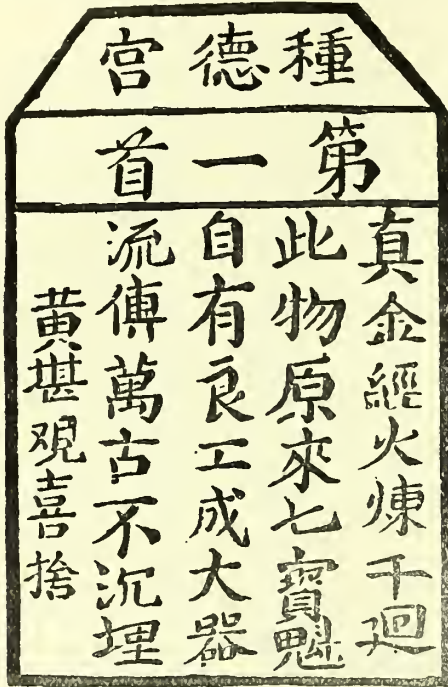 種德宮
第一首
真金經火煉千迴
此物原來七寶魁
自有良工成大器
流傳萬古不沉埋
黄堪观喜捨